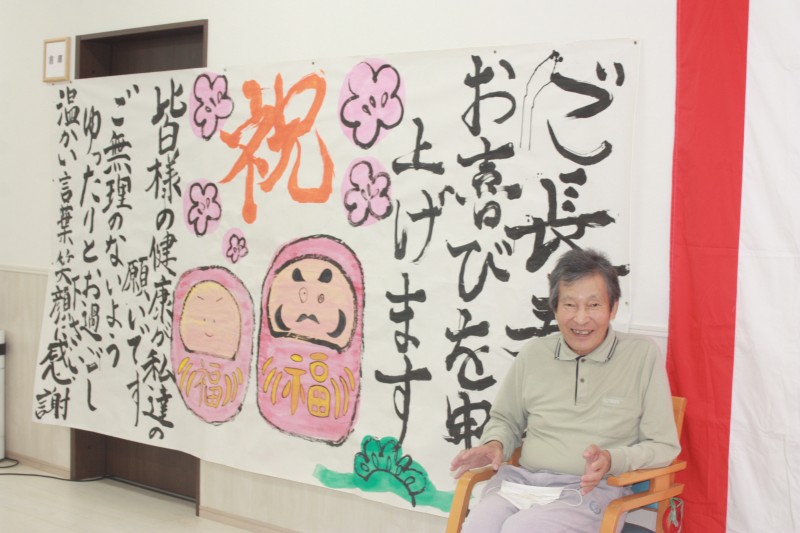 ご長
お喜びを申
上げます
祝
皆様の健康が私達の
願いです
ご無理のないよう
ゆったりとお過ごし
下さい
温かい言葉笑顔に感謝
福
福